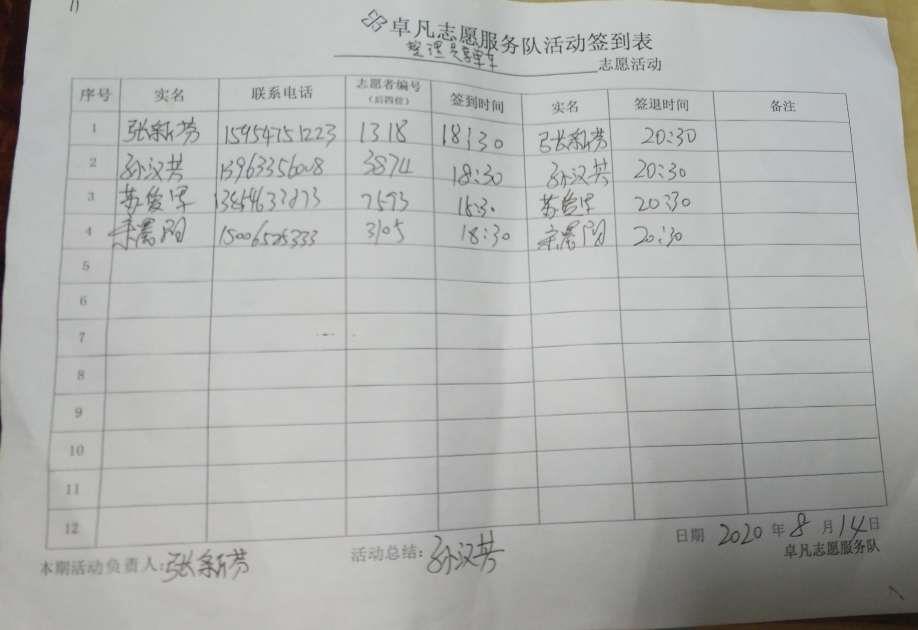 卓凡志愿服务队活动签到表
整理共享单车 志愿活动
序号 实名 联系电话 志愿者编号（后四位） 签到时间 实名 签退时间 备注
1 张新芳 15954751223 1318 18:30 张新芳 20:30
2 孙汉共 13963356008 3874 18:30 孙汉共 20:30
3 苏爱军 20:30
4 3105 18:30 20:30
5
6
7
8
9
10
11
12
日期 2020年8月14日
本期活动负责人:张新芳 活动总结:孙汉共 卓凡志愿服务队